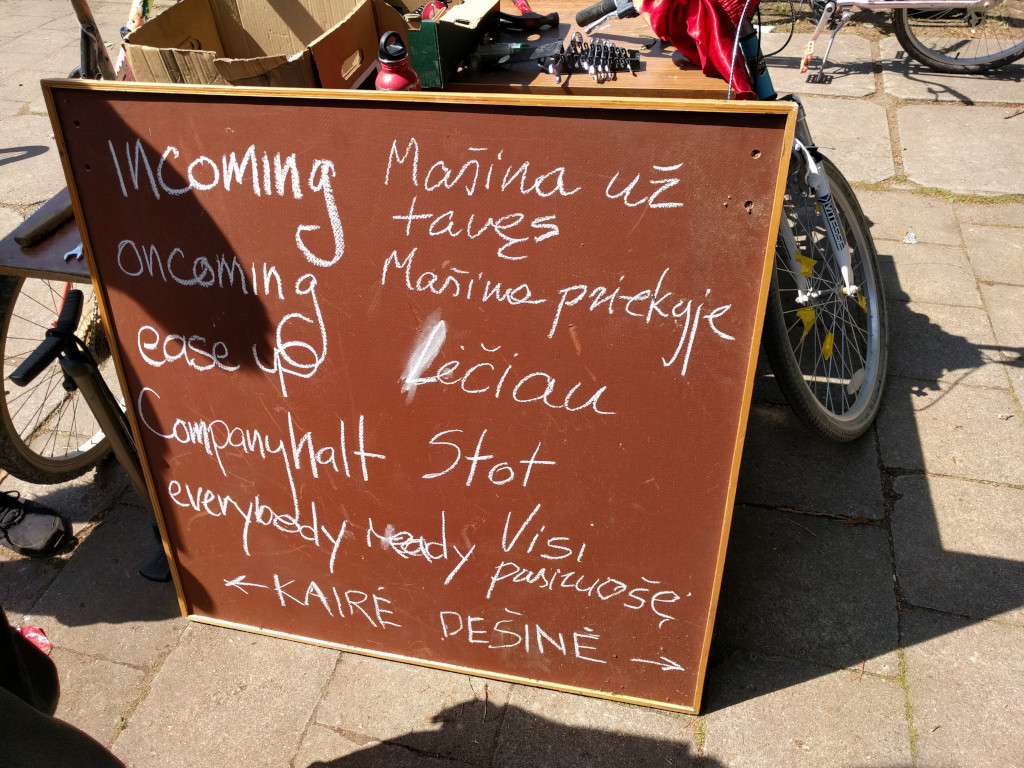 Incoming Mašina už
tavęs
oncoming Mašina priekyje
ease up Lėčiau
Company halt Stot
everybody ready Visi
pasiruošę
← KAIRĖ DEŠINĖ →